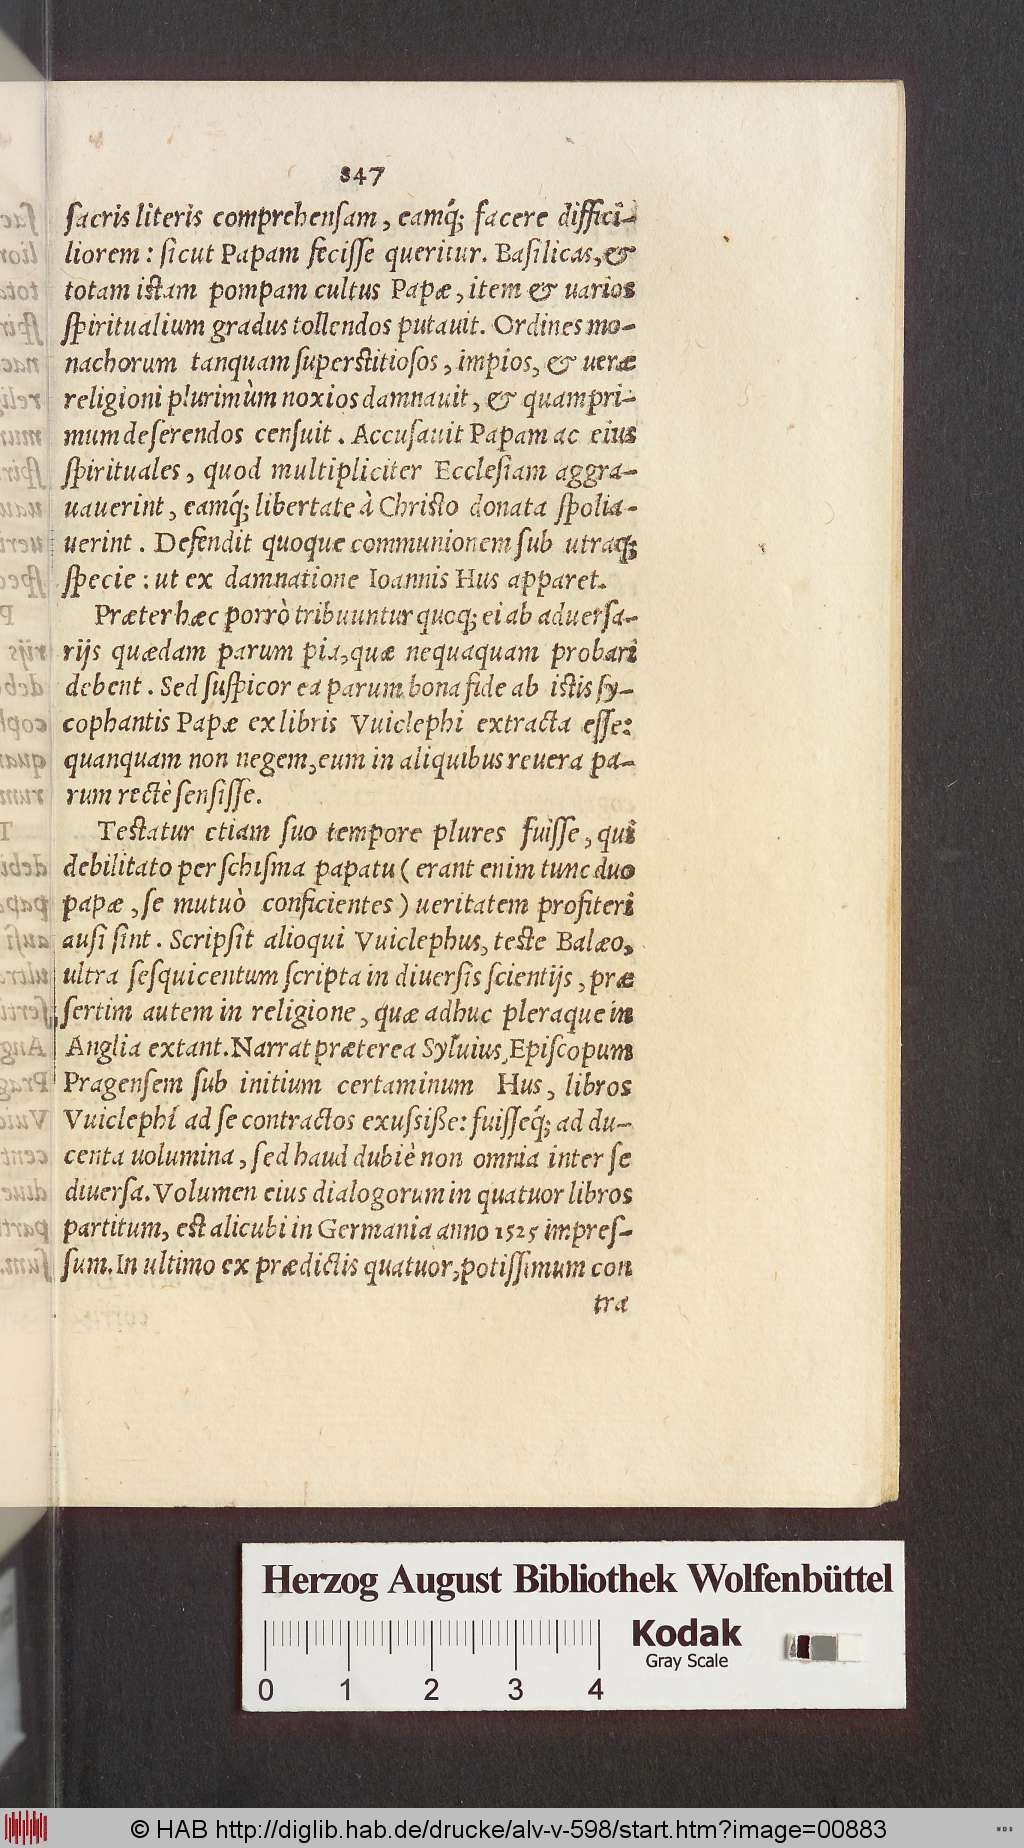 847
sacris literis comprehensam, eamq́; facere diffici-
liorem: sicut Papam fecisse queritur. Basilicas, &
totam istam pompam cultus Papæ, item & uarios
spiritualium gradus tollendos putauit. Ordines mo-
nachorum tanquam superstitiosos, impios, & ueræ
religioni plurimùm noxios damnauit, & quampri-
mum deserendos censuit. Accusauit Papam ac eius
spirituales, quod multipliciter Ecclesiam aggra-
uauerint, eamq́; libertate à Christo donata spolia-
uerint. Defendit quoque communionem sub utraq;
specie: ut ex damnatione Ioannis Hus apparet.
Præter hæc porrò tribuuntur quoq; ei ab aduersa-
rijs quædam parum pia, quæ nequaquam probari
debent. Sed suspicor ea parum bona fide ab istis sy-
cophantis Papæ ex libris Vuiclephi extracta esse:
quanquam non negem, eum in aliquibus reuera pa-
rum rectè sensisse.
Testatur etiam suo tempore plures fuisse, qui
debilitato per schisma papatu (erant enim tunc duo
papæ, se mutuò conficientes) ueritatem profiteri
ausi sint. Scripsit alioqui Vuiclephus, teste Balæo,
ultra sesquicentum scripta in diuersis scientijs, præ
sertim autem in religione, quæ adhuc pleraque in
Anglia extant. Narrat præterea Syluius, Episcopum
Pragensem sub initium certaminum Hus, libros
Vuiclephi ad se contractos exussiße: fuisseq́; ad du-
centa uolumina, sed haud dubiè non omnia inter se
diuersa. Volumen eius dialogorum in quatuor libros
partitum, est alicubi in Germania anno 1525 impres-
sum. In ultimo ex prædictis quatuor, potissimum con
tra
Herzog August Bibliothek Wolfenbüttel
Kodak
Gray Scale
0 1 2 3 4
© HAB http://diglib.hab.de/drucke/alv-v-598/start.htm?image=00883